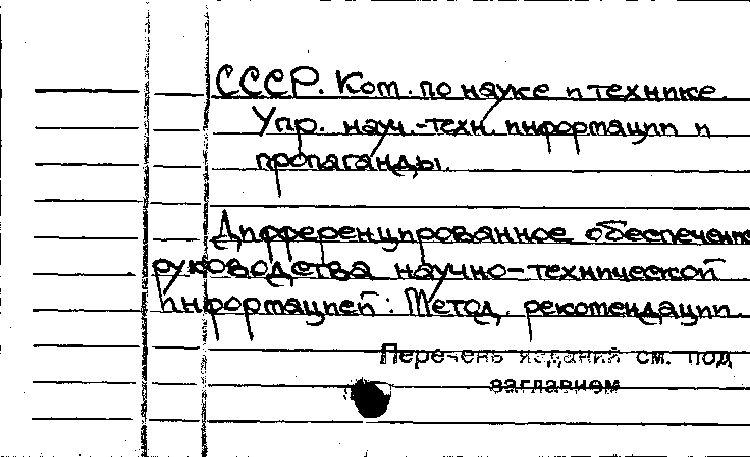 СССР. Ком. по науке и технике
Упр. науч.-техн. информации и
пропаганды.
Дифференцированное обеспечение
руководства научно-технической
информацией: Метод. рекомендации.
Перечень изданий см. под
заглавием